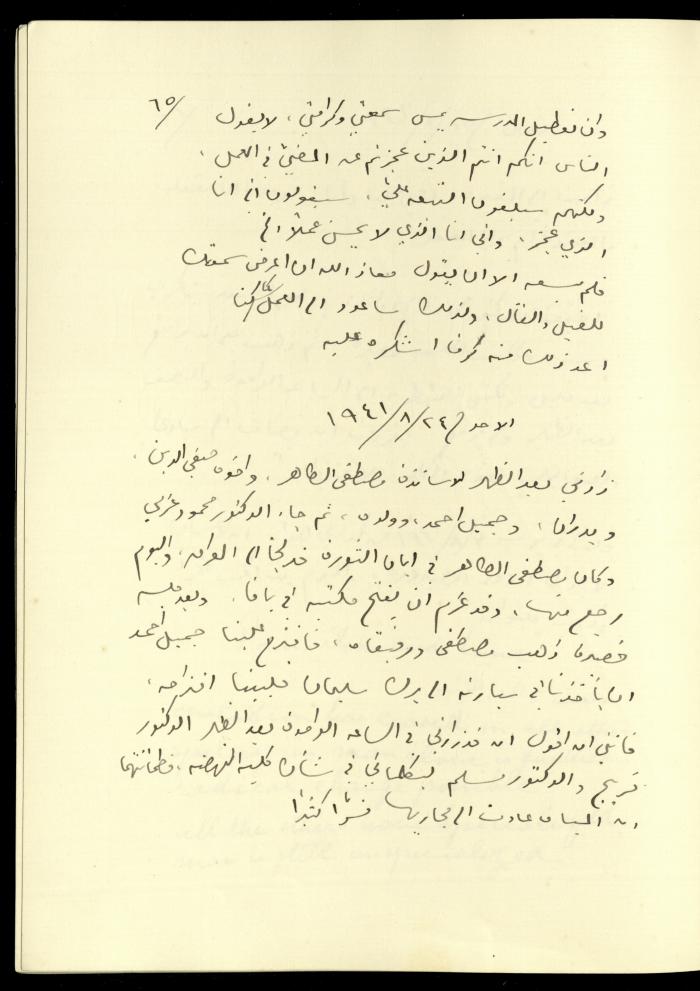 ٦٥/
وان تعطيل المدرسه يمس سمعتي وكرامتي، لا يقول
الناس انكم انتم الذين عجزتم عن المضيّ في العمل،
ولكنهم سيلقون التبعه عليّ، سيقولون اني انا
الذي عجز، واني انا الذي لا يحسن عملا الخ
فلم يسعه الا ان يقول معاذ الله ان اعرض سمعتك
للقيل والقال، ولذلك ساعود الى العمل كما كنا
اعد ذلك منه كرما اشكره عليه
الاحد ٢٤/٨/١٩٤١
زارني بعد الظهر الاساتذة مصطفى الطاهر، واخوه صفي الدين،
وبدران، وجميل احمد، وولده، ثم جاء الدكتور محمود عزمي
وكان مصطفى الطاهر في ابان الثورة قد لجأ الى العراق، واليوم
رجع منها، وقد عزم ان يفتح مكتبه في يافا. وبعد جلسه
قصيرة ذهب مصطفى ورفيقاه، فاقترح علينا جميل احمد
ان يأخذنا في سيارته الى برك سليمان فلبينا اقتراحه،
فاتني ان اقول ان قد زارني في الساعه الواحدة بعد الظهر الدكتور
فريج والدكتور مسلم ليكلماني في شأن كلية النهضه، فطمأنتهما
ان المياه عادت الى مجاريها فسُرّا كثيرًا